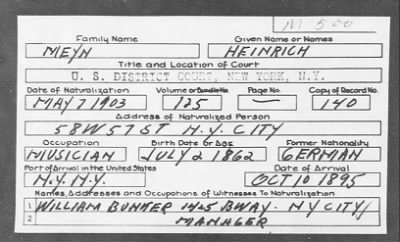 M 500
Family Name Given Name or Names
MEYN HEINRICH
Title and Location of Court
U. S. DISTRICT COURT, NEW YORK, N.Y.
Date of Naturalization Volume or Bundle No. Page No. Copy of Record No.
MAY 7 1903 125 — 140
Address of Naturalized Person
58 W 57 ST N.Y. CITY
Occupation Birth Date or Age Former Nationality
MUSICIAN JULY 2 1862 GERMAN
Port of Arrival in the United States Date of Arrival
N.Y. N.Y. OCT 10 1895
Names, Addresses and Occupations of Witnesses To Naturalization
1 WILLIAM BUNKER 1425 BWAY. NY CITY
2 MANAGER